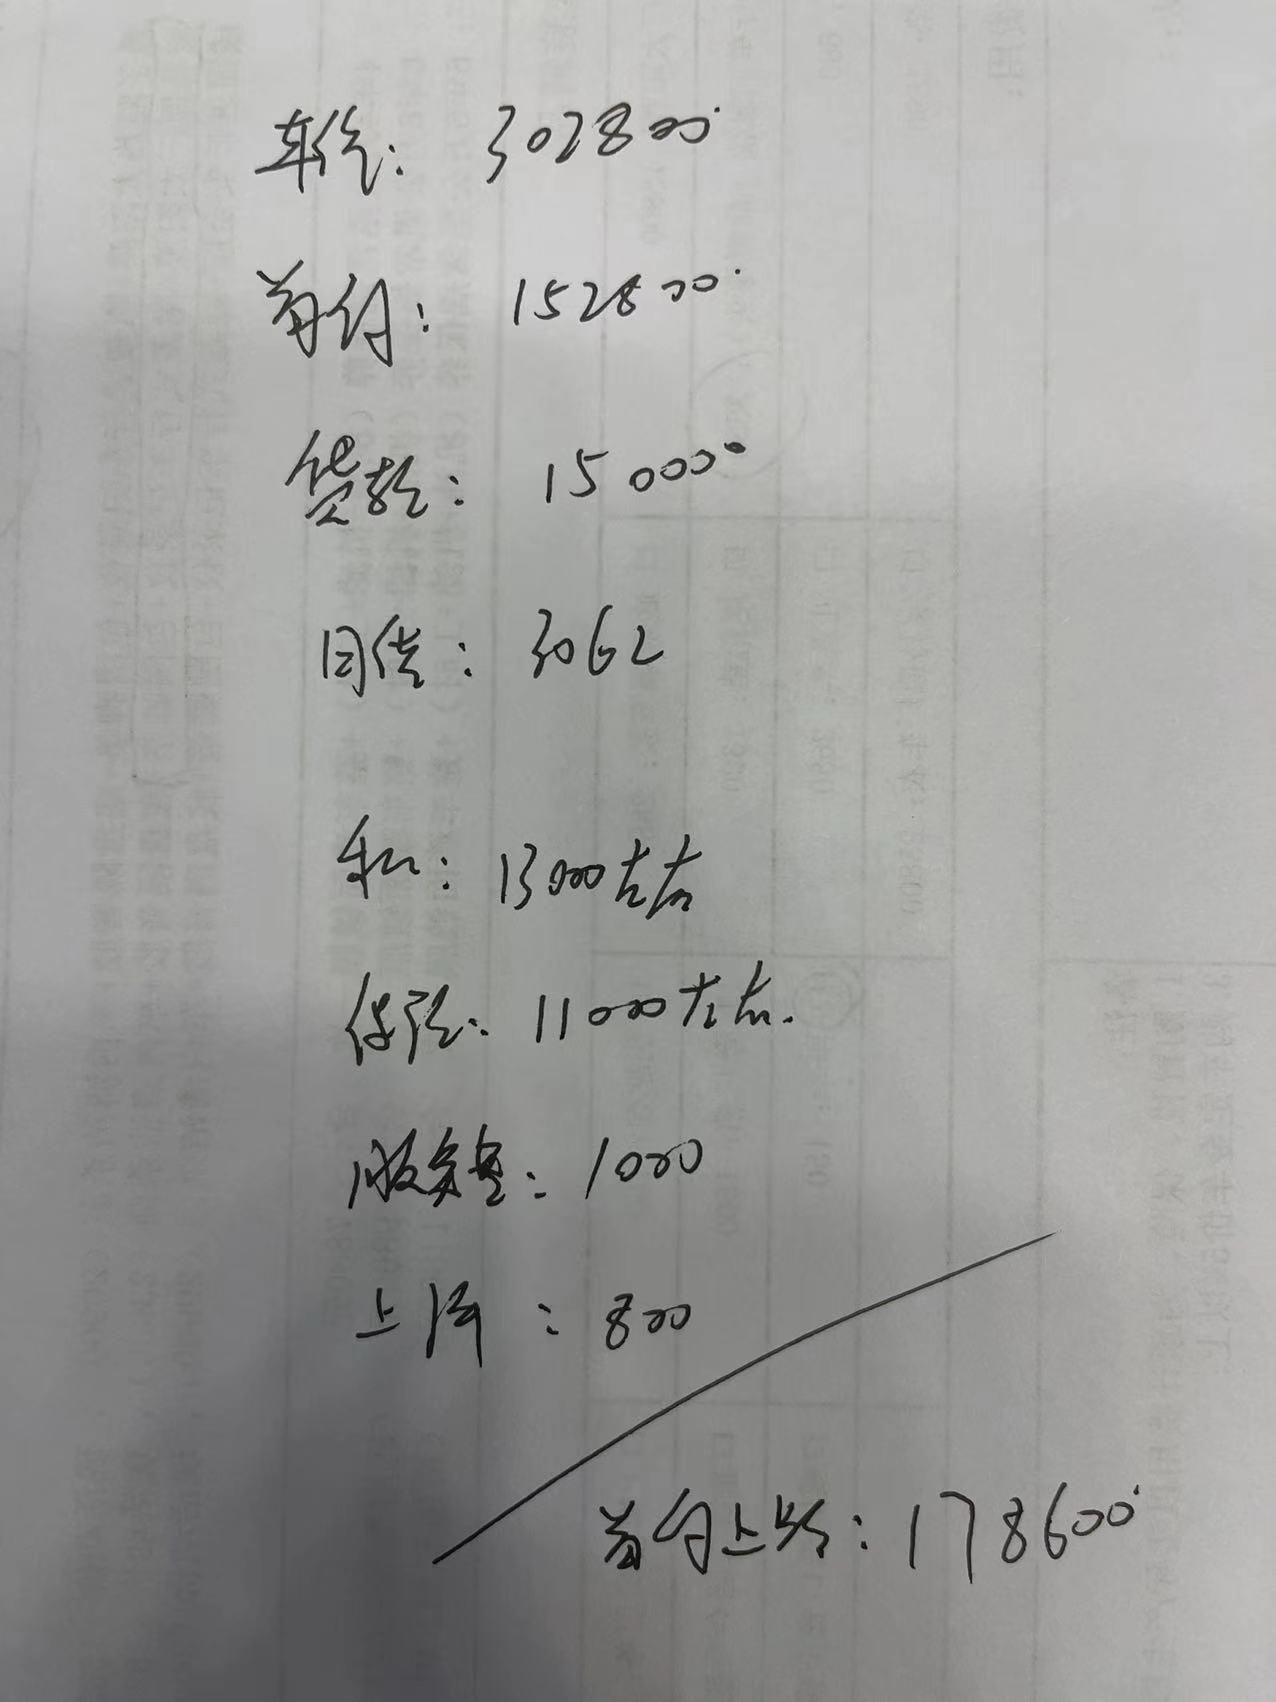 车价：302800
首付：152800
贷款：150000
月供：3062
税：13000左右
保险：11000左右.
服务费：1000
上牌：800
首付上路：178600